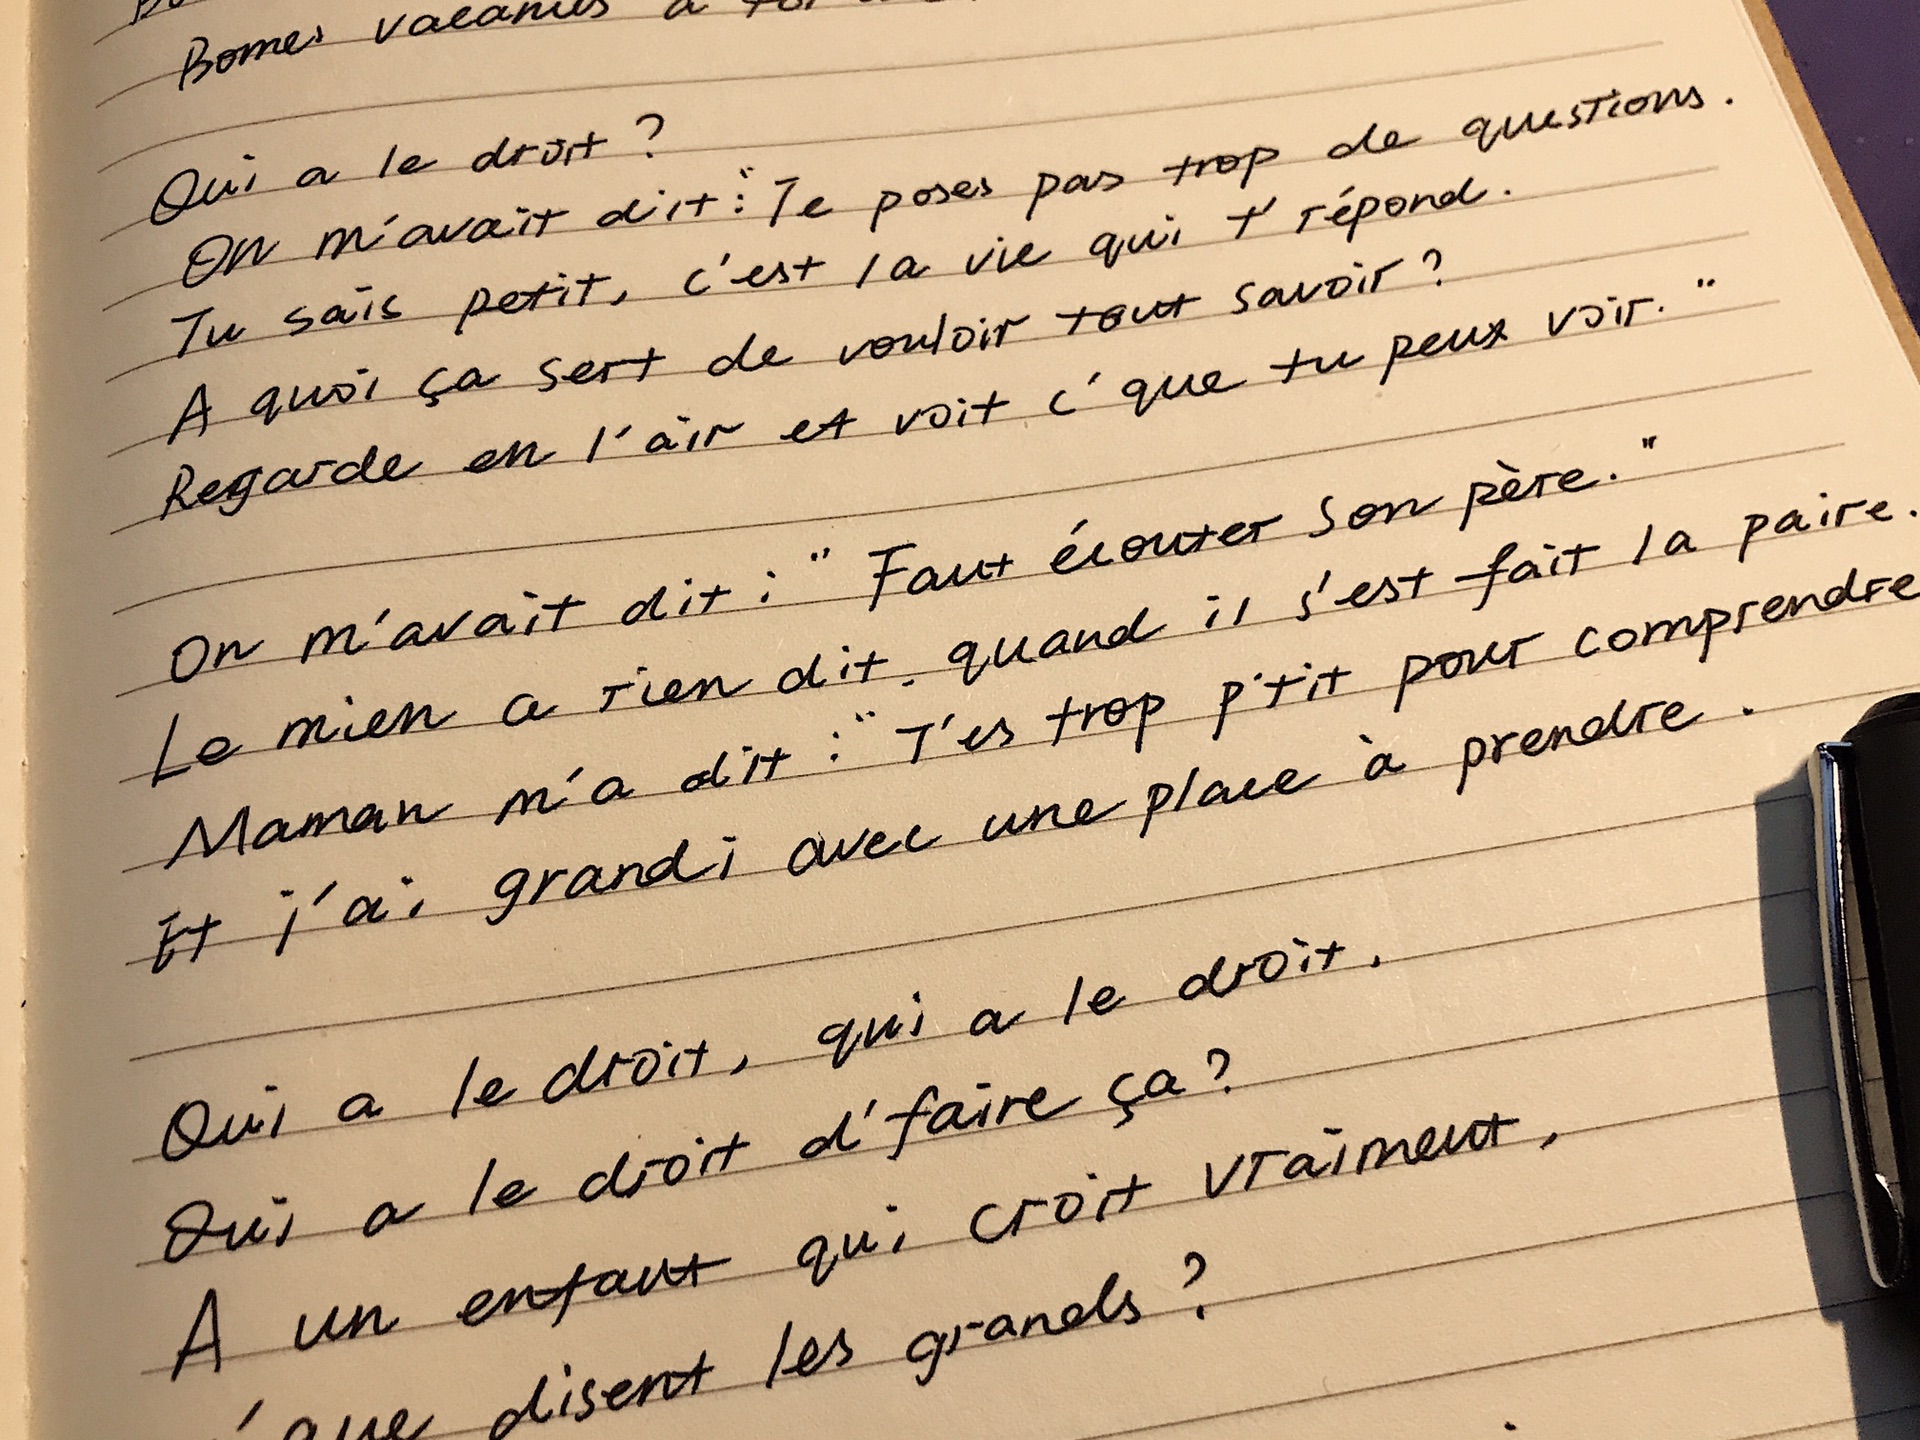 Bonnes vacances à toi
Qui a le droit ?
On m'avait dit : "Te poses pas trop de questions.
Tu sais petit, c'est la vie qui t'répond.
A quoi ça sert de vouloir tout savoir ?
Regarde en l'air et voit c'que tu peux voir."
On m'avait dit : "Faut écouter son père."
Le mien a rien dit, quand il s'est fait la paire.
Maman m'a dit : "T'es trop p'tit pour comprendre
Et j'ai grandi avec une place à prendre.
Qui a le droit, qui a le droit,
Qui a le droit d'faire ça ?
A un enfant qui croit vraiment,
c'que disent les grands ?